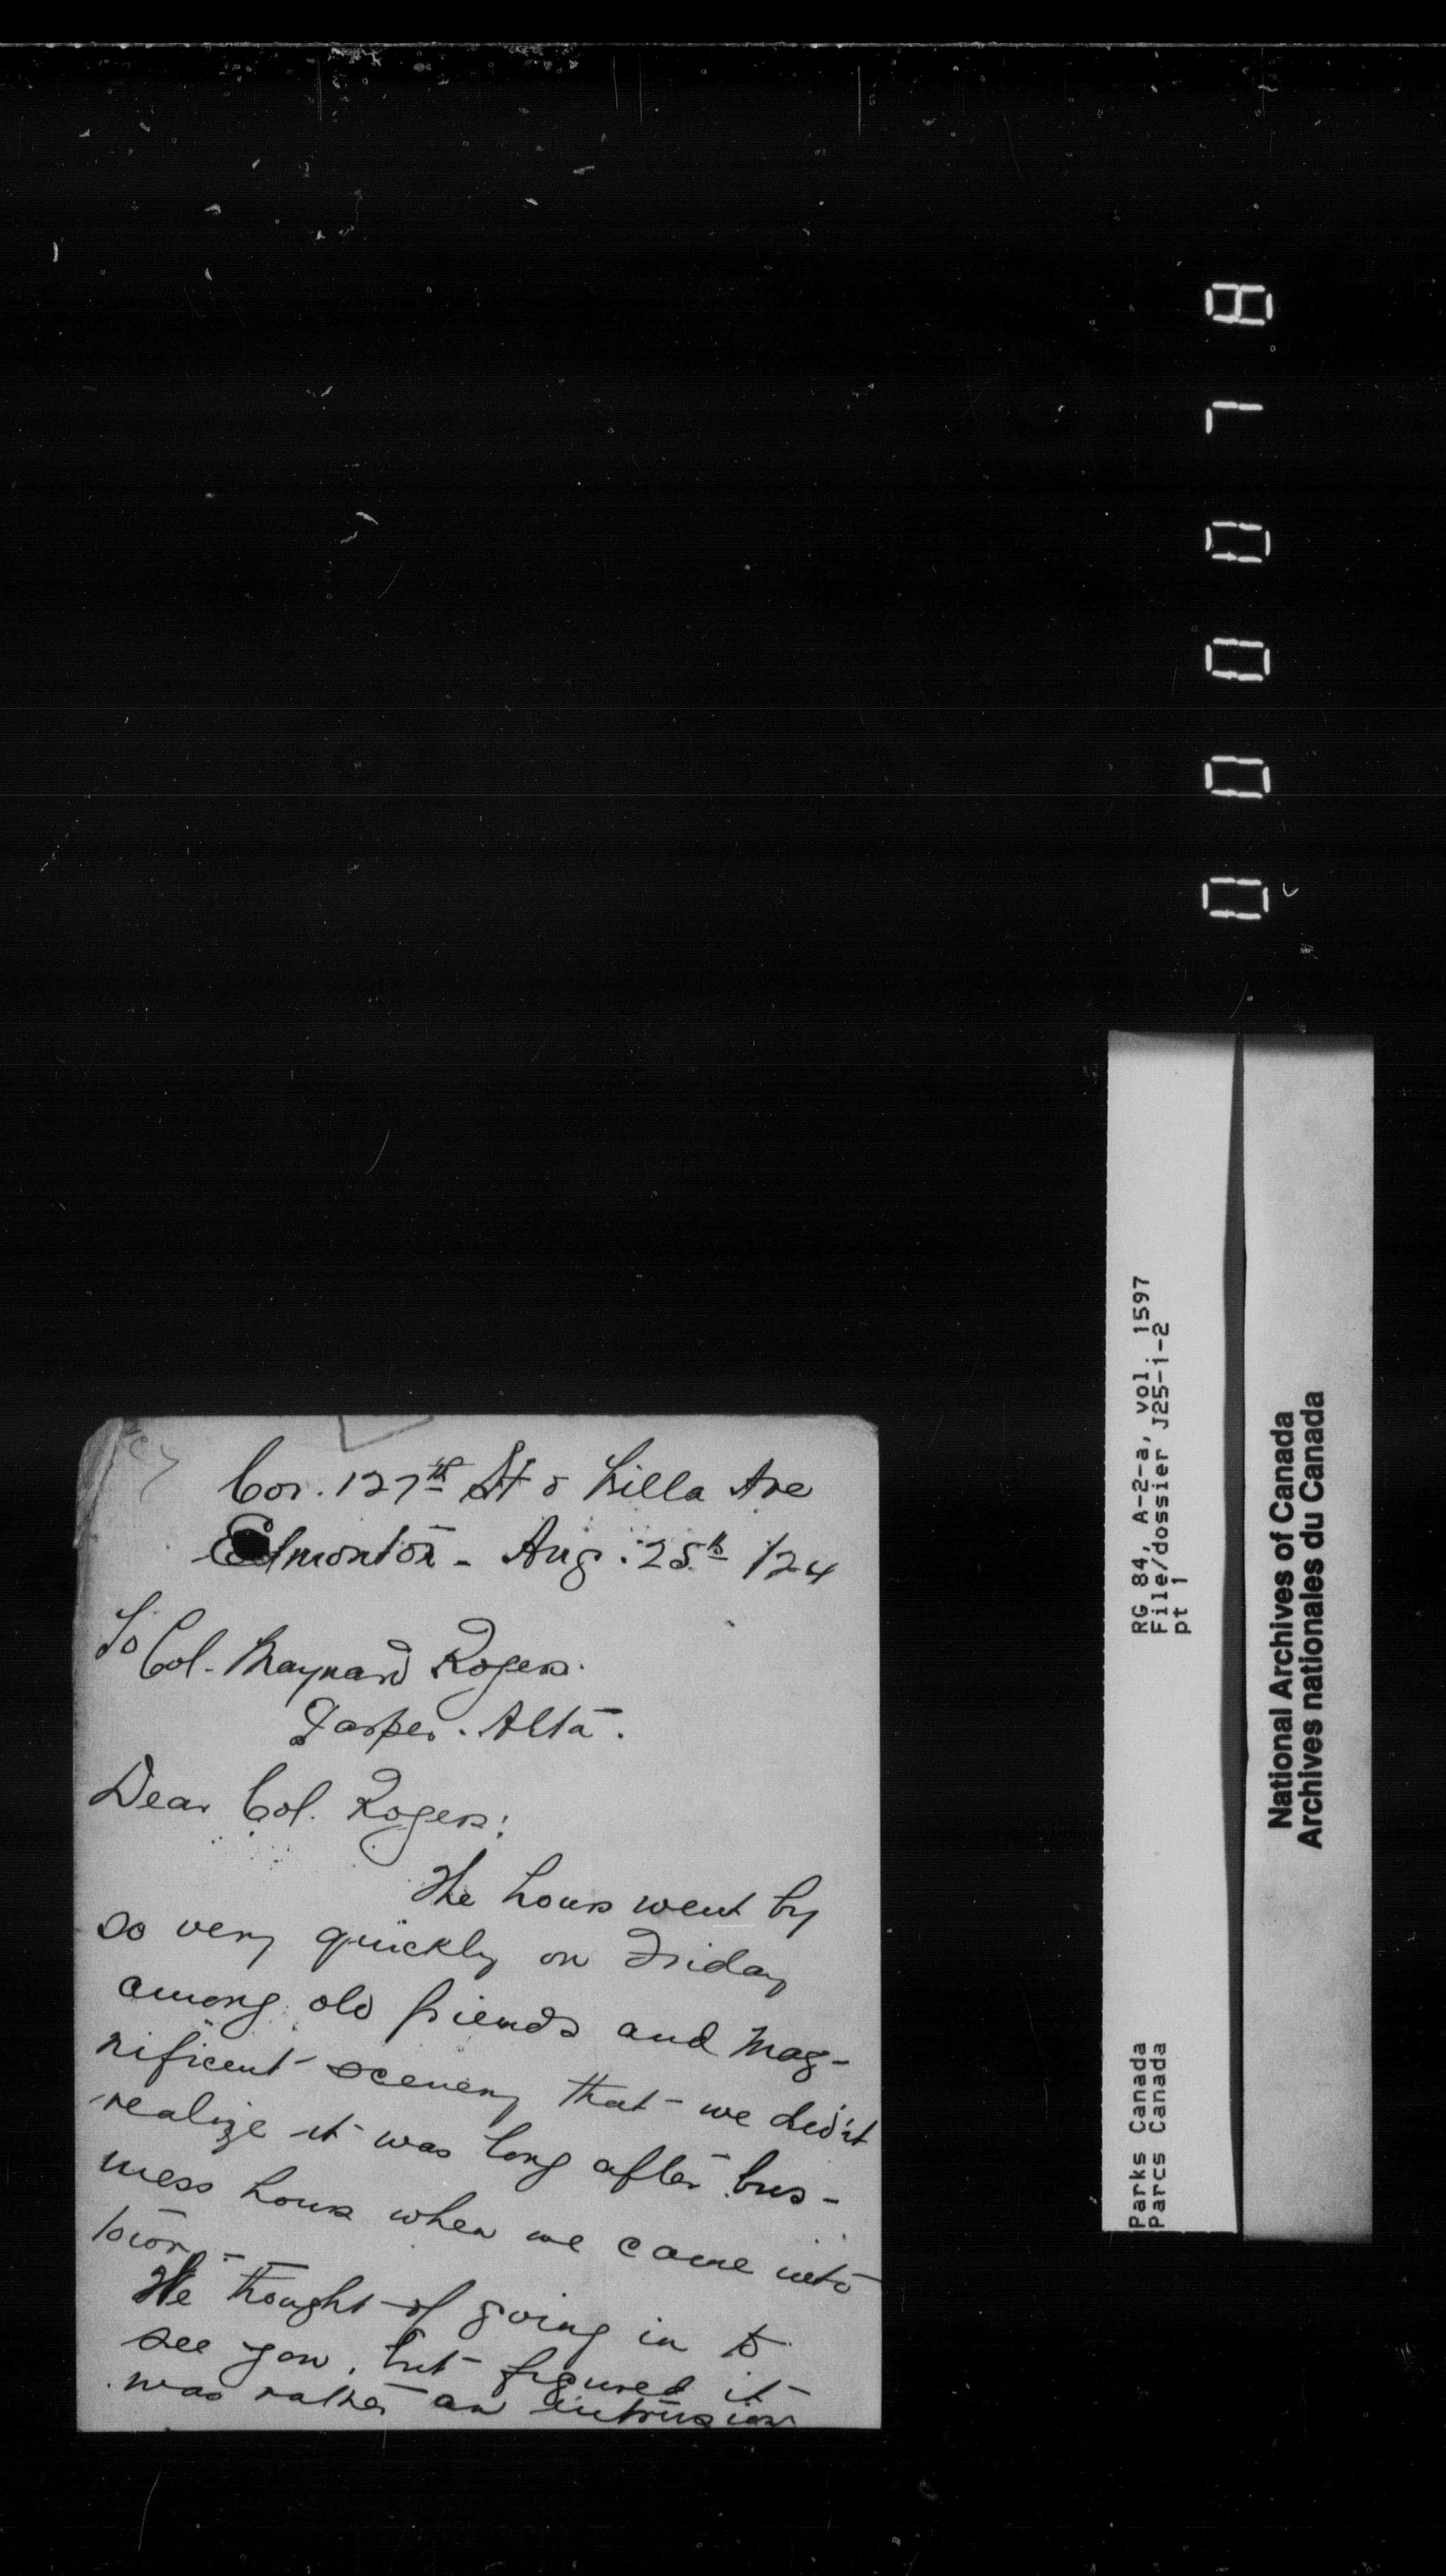 Cor. 127th St & Villa Ave
Edmonton - Aug. 25th /24
To Col. Maynard Rogers.
Jasper. Alta.
Dear Col. Rogers:
The hours went by
so very quickly on Friday
among old friends and mag-
nificent scenery that we didn't
realize it was long after bus-
iness hours when we came into
town.
We thought of going in to
see you, but figured it
was rather an intrusion
000078
RG 84, A-2-a, vol. 1597
File/dossier J25-1-2
pt 1
Parks Canada
Parcs Canada
National Archives of Canada
Archives nationales du Canada